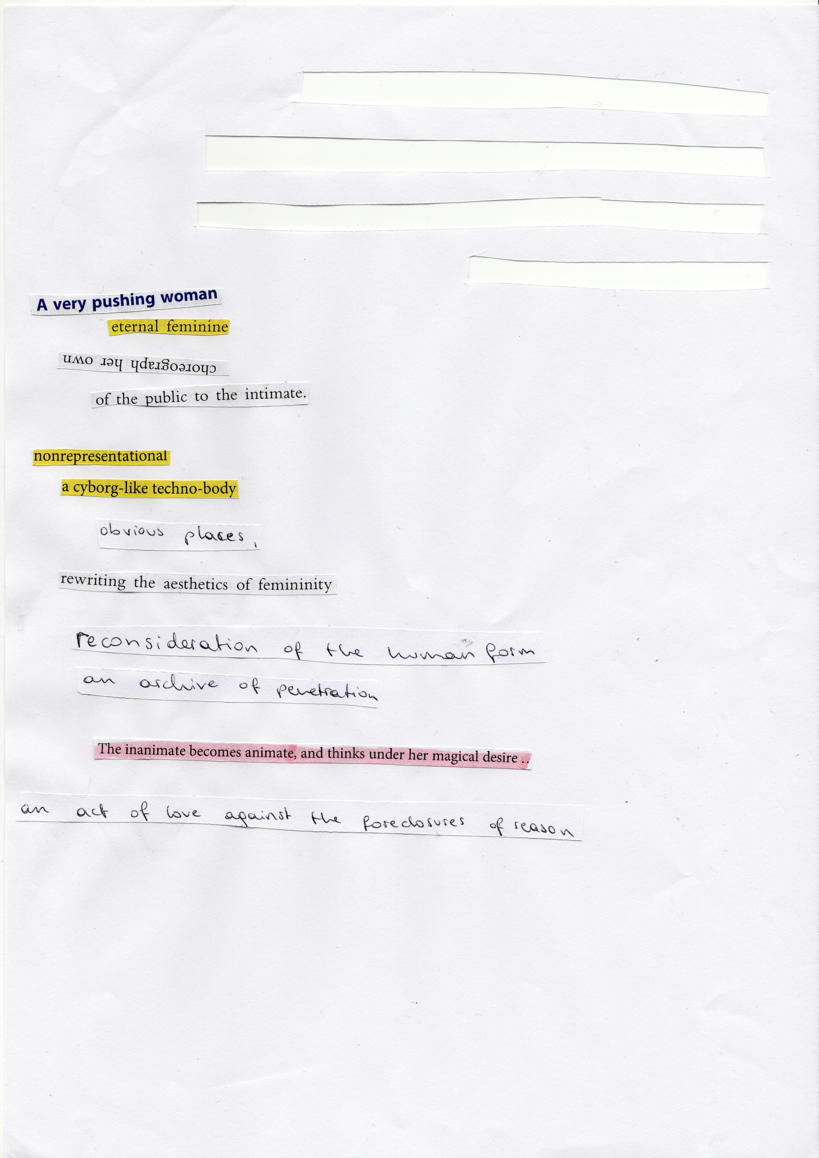 A very pushing woman
eternal feminine
choreograph her own
of the public to the intimate.
nonrepresentational
a cyborg-like techno-body
obvious places,
rewriting the aesthetics of femininity
reconsideration of the human form
an archive of penetration
The inanimate becomes animate, and thinks under her magical desire ..
an act of love against the foreclosures of reason